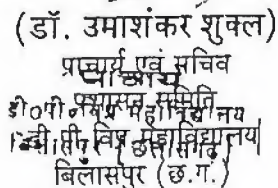 (डॉ. उमाशंकर शुक्ल)
प्राचार्य एवं सचिव
प्राचार्य
प्रशासन समिति
डी०पी० विप्र महाविद्यालय
डी.पी. विप्र महाविद्यालय
बिलासपुर (छ.ग.)